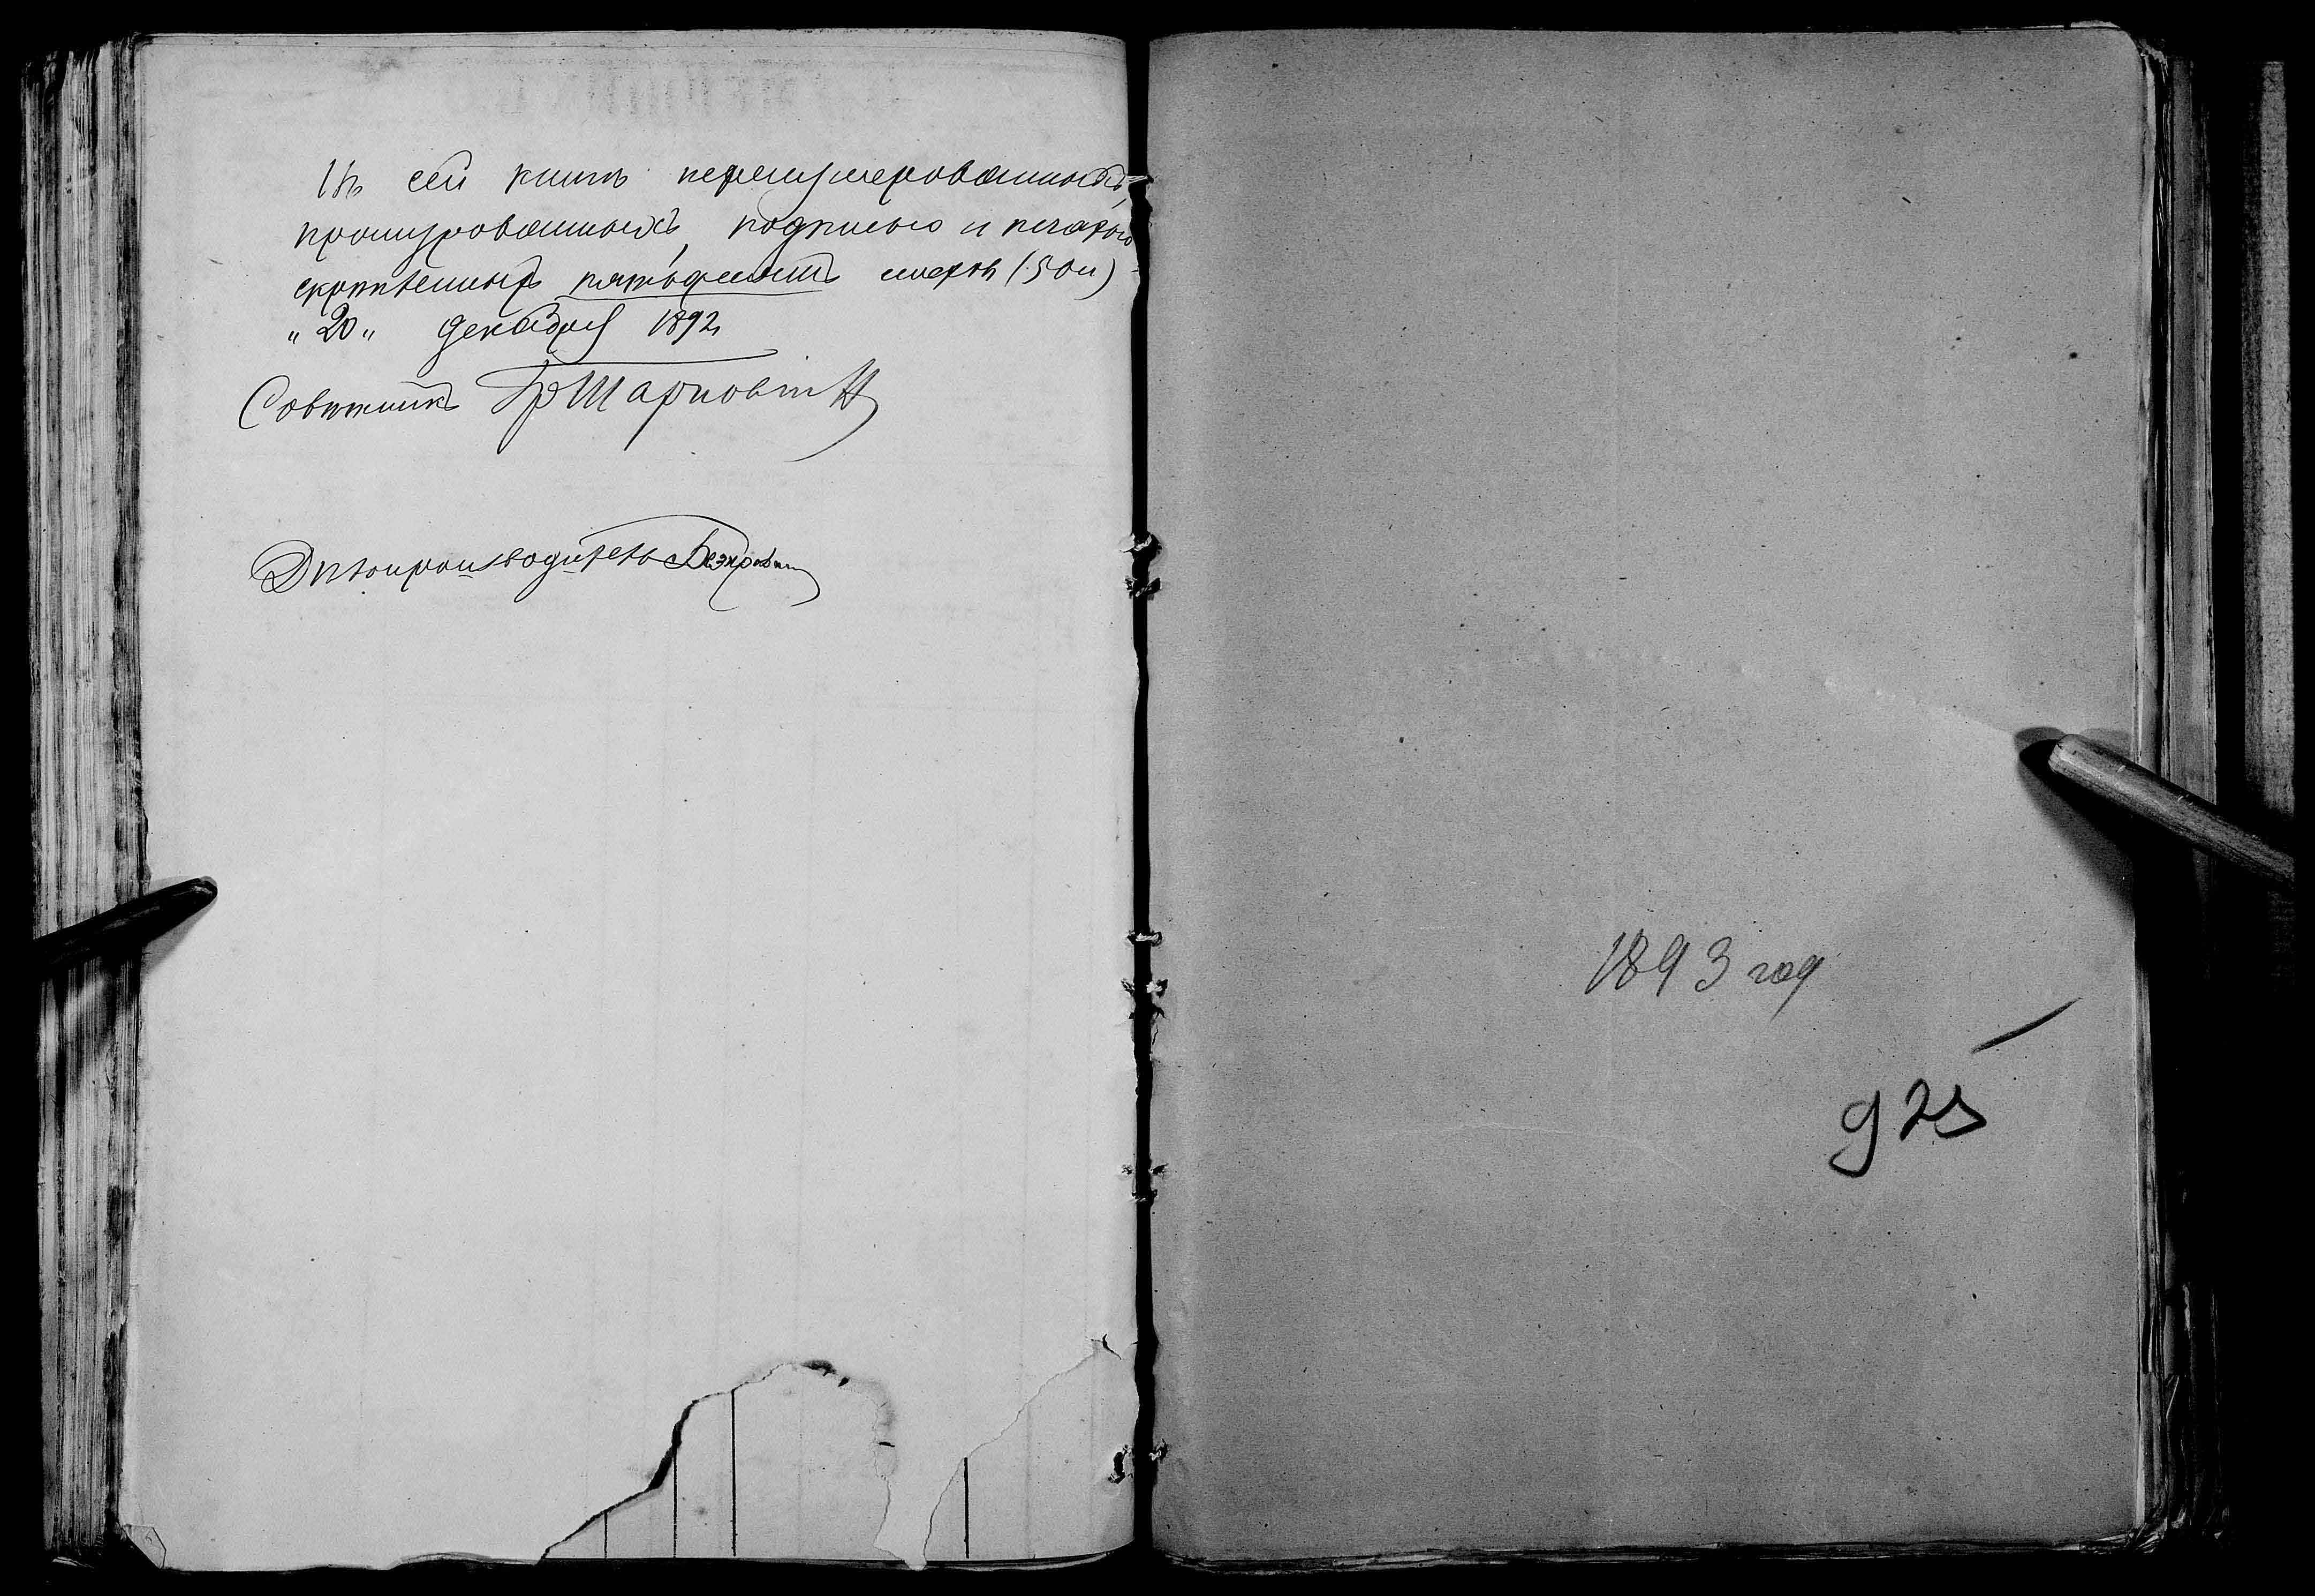 Въ сей книгѣ перенумерованныхъ,
прошнурованныхъ, подписью и печатью
скрѣпленныхъ пятьдесятъ листовъ (50л)
„20„ декабря 1892
Совѣтникъ
Дѣлопроизводитель
1893 год
925